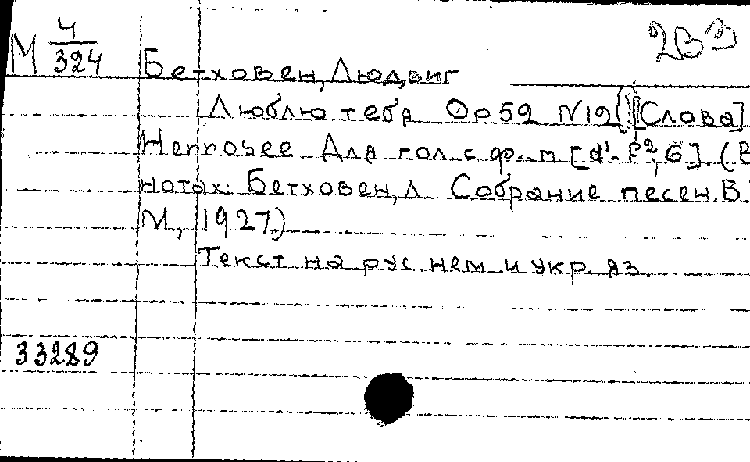 М 4/324
Бетховен, Людвиг
Люблю тебя Ор 52 N12 [Слова]
Для гол. с ф-п [d¹- , G] (В
нотах: Бетховен, Л Собрание песен. В
М, 1927)
Текст на рус. нем и укр. яз.
33289